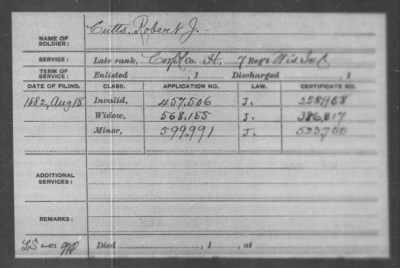 NAME OF SOLDIER: Cutts, Robert J.
SERVICE: Late rank, Corpl Co. H. 7 Reg't Wis Inf.
TERM OF SERVICE: Enlisted , 1 Discharged , 1
DATE OF FILING. CLASS. APPLICATION NO. LAW. CERTIFICATE NO.
1882, Aug 18 Invalid, 457,506 J. 258,968
Widow, 568,155 J. 386,817
Minor, 599,991 J. 523,750
ADDITIONAL SERVICES:
REMARKS:
Died , 1 , at